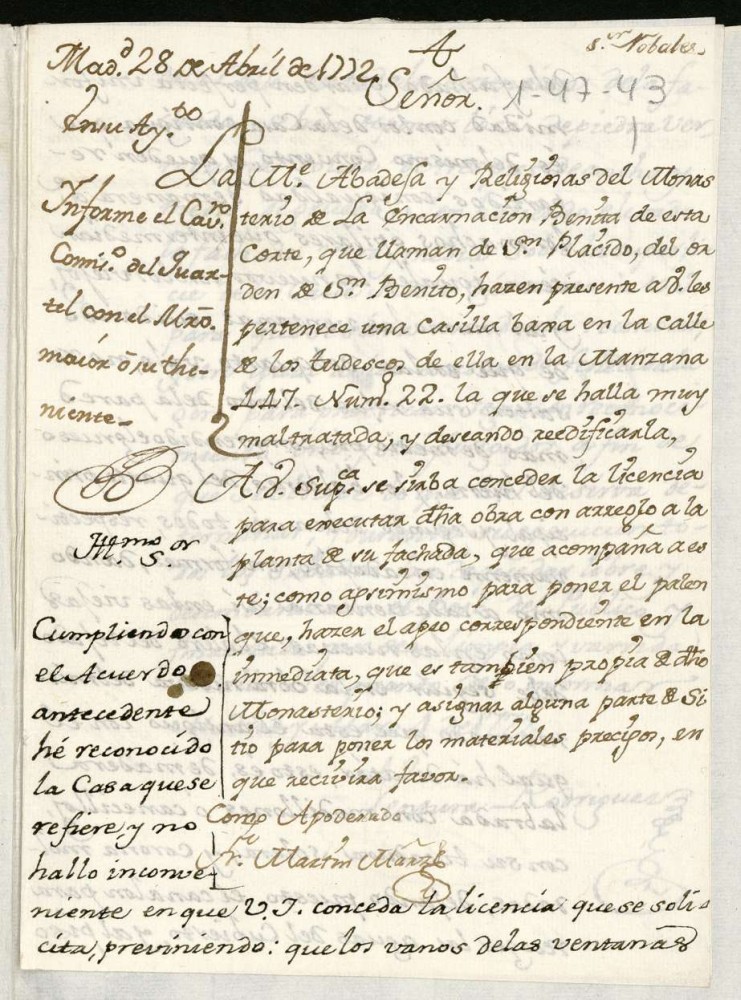 Mad.d 28 de Abril de 1772
s.or Nobales
Señor.
1-47-43
En su Ay.to
Informe el Cav.ro
Comis.o del Quar-
tel con el Mro.
maior ó su the-
niente-
La M.e Abadesa y Religiosas del Monas
terio de La Encarnacion Benita de esta
Corte, que llaman de S.n Placido, del or
den de S.n Benito, hazen presente a V. les
pertenece una Casilla baxa en la Calle
de los tudescos de ella en la Manzana
447. Num.o 22. la que se halla muy
maltratada, y deseando reedificarla,
A V. Sup.ca se sirba conceder la licencia
para executar dha obra con arreglo a la
planta de su fachada, que acompaña a es
te; como apsimismo para poner el palen
que, hazer el apeo correspondiente en la
inmediata, que es tambien propia de dho
Monasterio; y asignar alguna parte de Si
tio para poner los materiales precisos, en
que recivira favor.
Como Apoderado
Fr. Martin Mărz
Ill.mo S.or
Cumpliendo con
el Acuerdo
antecedente
hé reconocido
la Casa que se
refiere, y no
hallo inconve-
niente en que V.I. conceda la licencia que se soli-
cita, previniendo: que los vanos de las ventanas